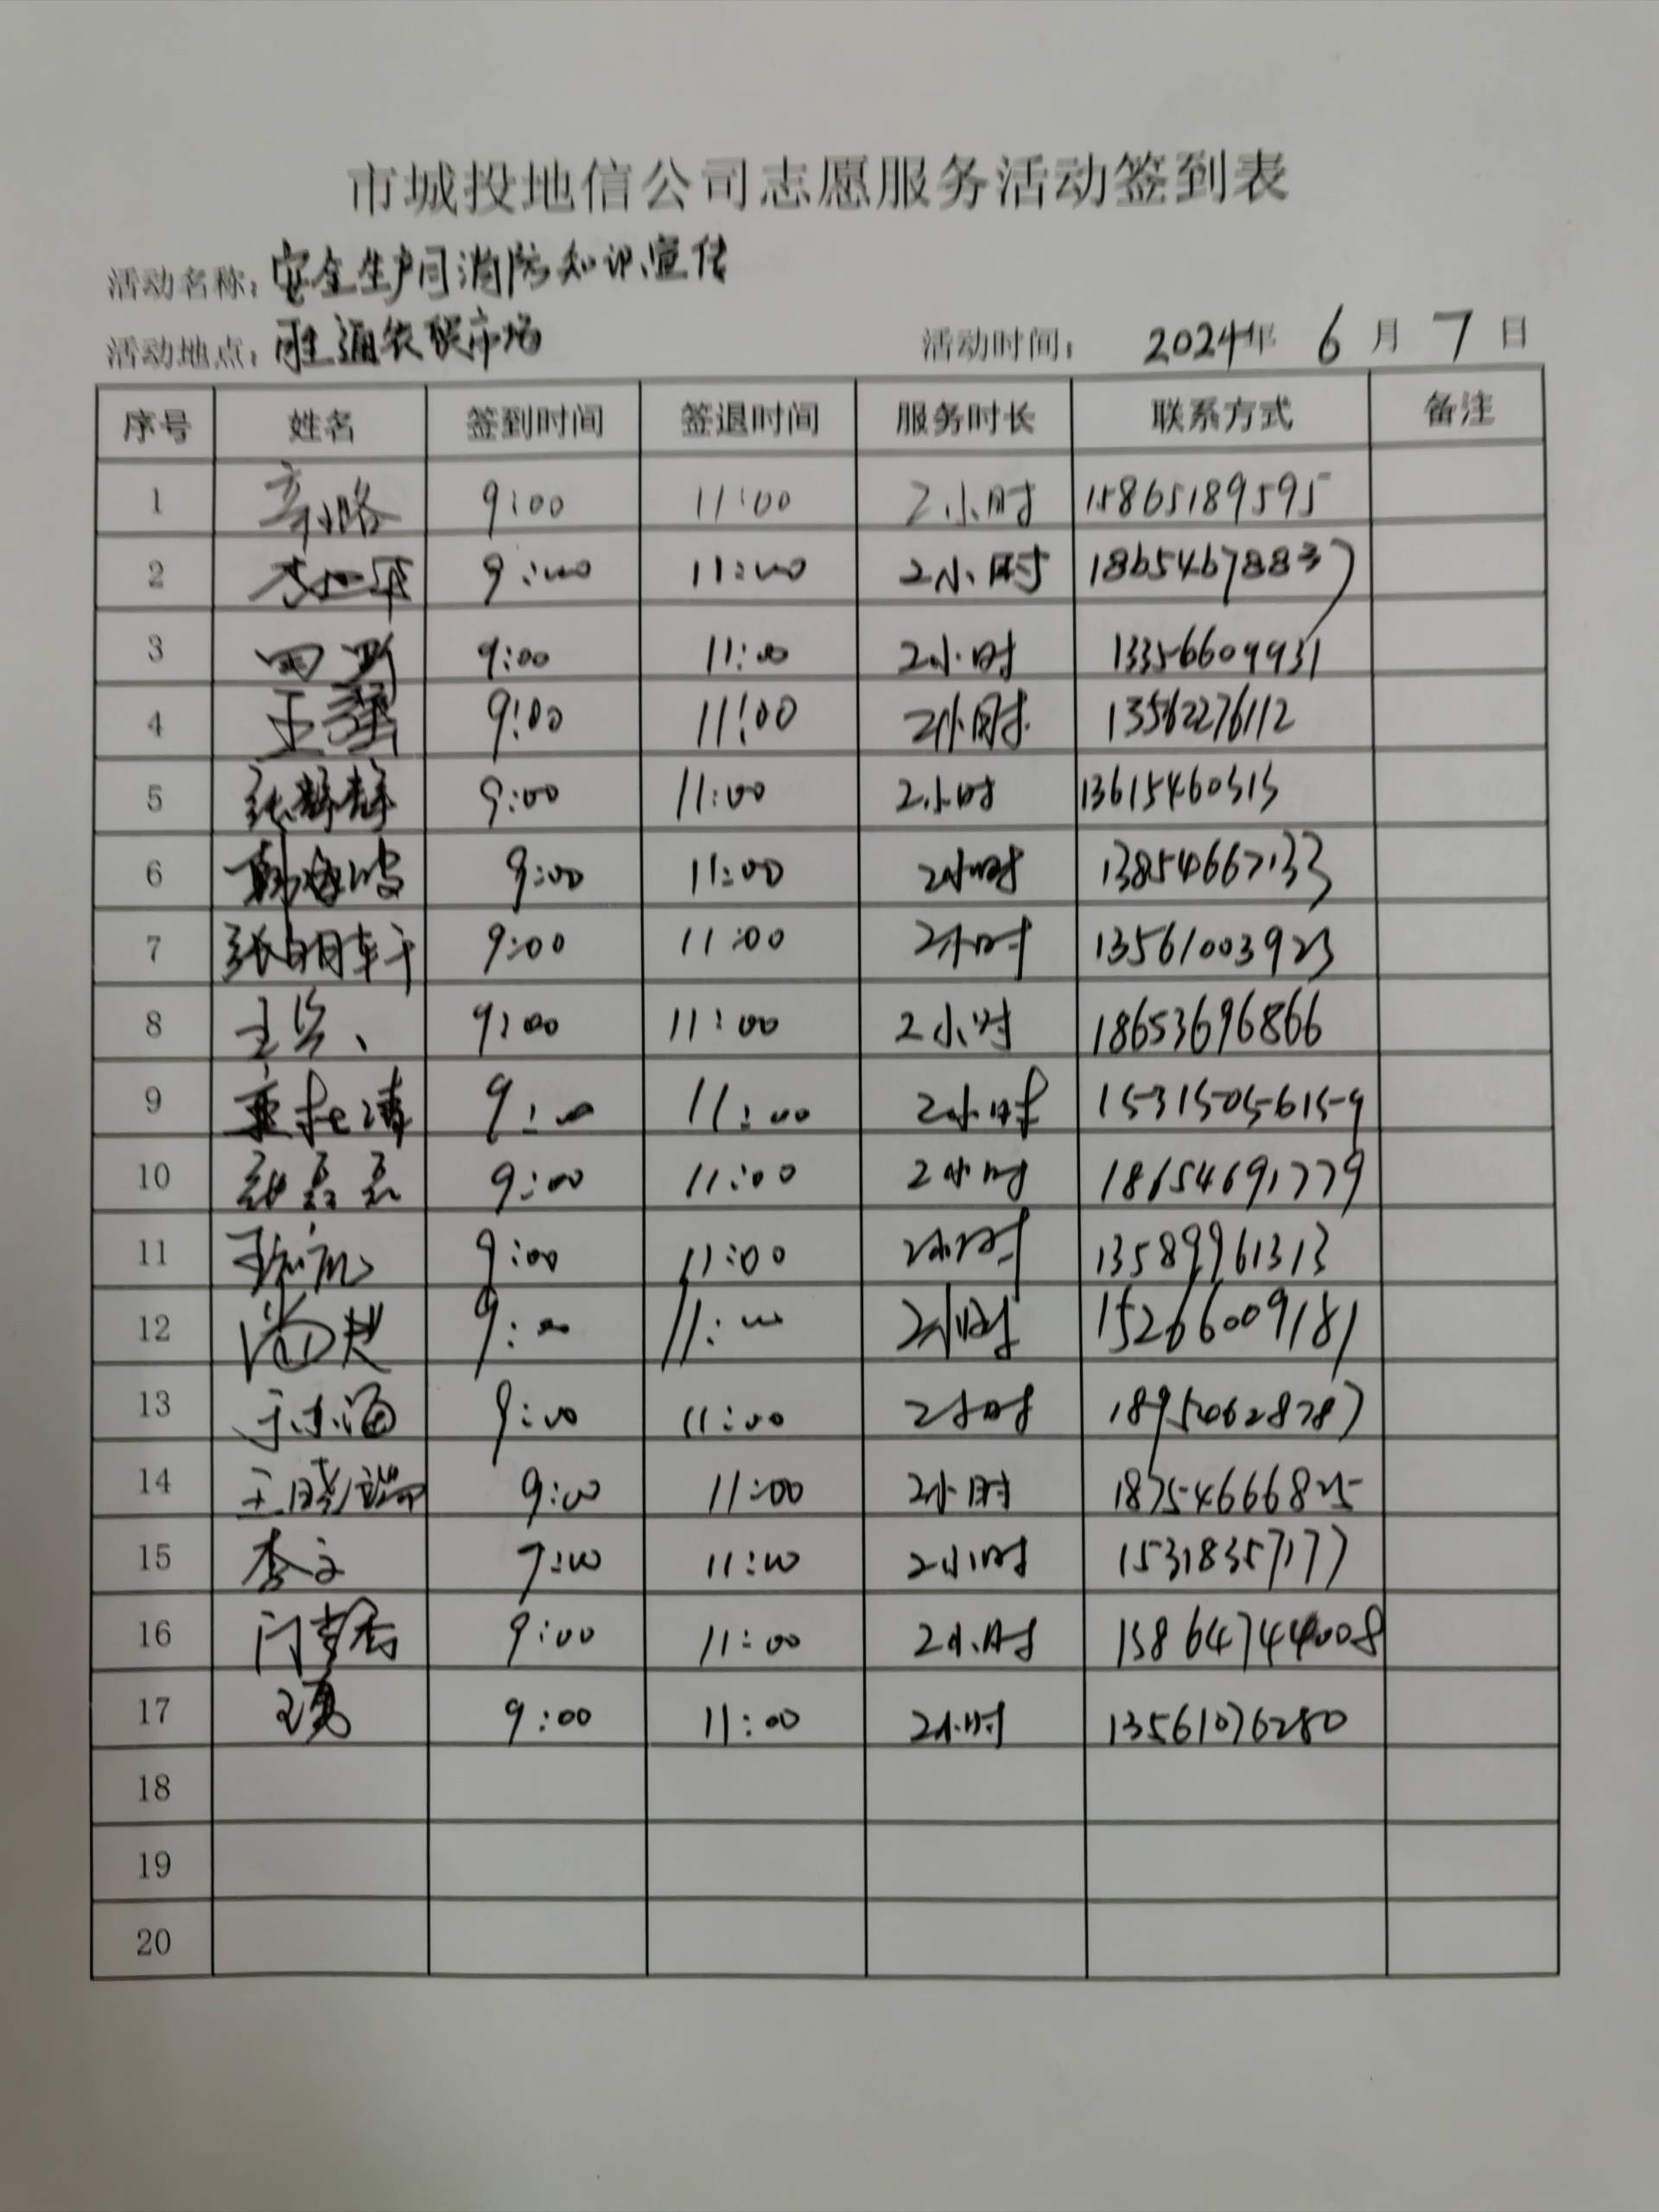 市城投地信公司志愿服务活动签到表
活动名称：安全生产月消防知识宣传
活动地点：胜通农贸市场 活动时间： 2024年 6 月 7 日
序号 姓名 签到时间 签退时间 服务时长 联系方式 备注
1 9:00 11:00 2小时 15865189595
2 9:00 11:00 2小时 18654678837
3 9:00 11:00 2小时 13356609931
4 王强 9:00 11:00 2小时 13562276112
5 张静静 9:00 11:00 2小时 13615460313
6 韩海波 9:00 11:00 2小时 13854667133
7 9:00 11:00 2小时 13561003923
8 9:00 11:00 2小时 18653696866
9 9:00 11:00 2小时 15315056159
10 张磊磊 9:00 11:00 2小时 18654691779
11 9:00 11:00 2小时 13589961313
12 9:00 11:00 2小时 15266009181
13 9:00 11:00 2小时
14 王晓瑞 9:00 11:00 2小时 18754666825
15 李文 11:00 2小时 15318357177
16 9:00 11:00 2小时
17 9:00 11:00 2小时 13561076280
18
19
20